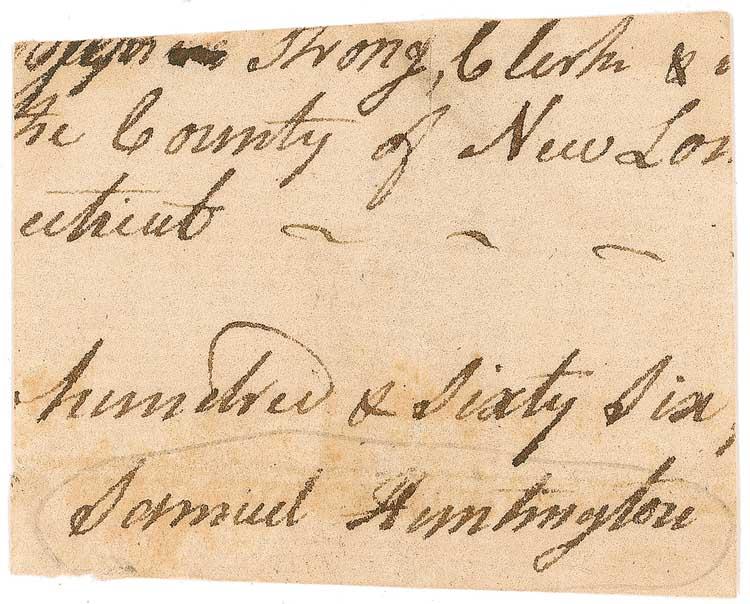 Strong, Clerk &
the County of New Lon
ecticut ~ ~ ~
hundred & Sixty Six,
Samuel Huntington